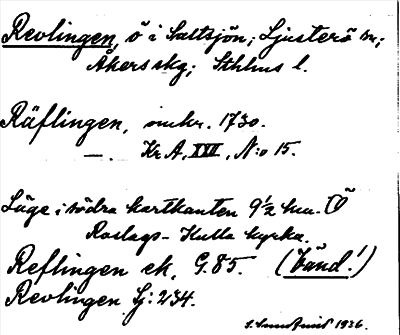 Revlingen, ö i Saltsjön; Ljusterö sn;
Åkers skg; Sthlms l.
Räflingen, omkr. 1730.
— . Kr A, XVI, N:o 15.
Läge i södra kartkanten 9½ km. Ö
Roslags-Kulla kyrka.
Reflingen ek. G.85. (bänd!)
Revlingen Sj: 234.
1936.